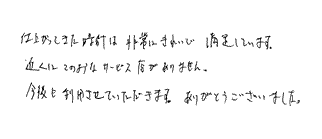 仕上がってきた時計は非常にきれいで満足しています。
近くにこのようなサービス店がありません。
今後も利用させていただきます。ありがとうございました。